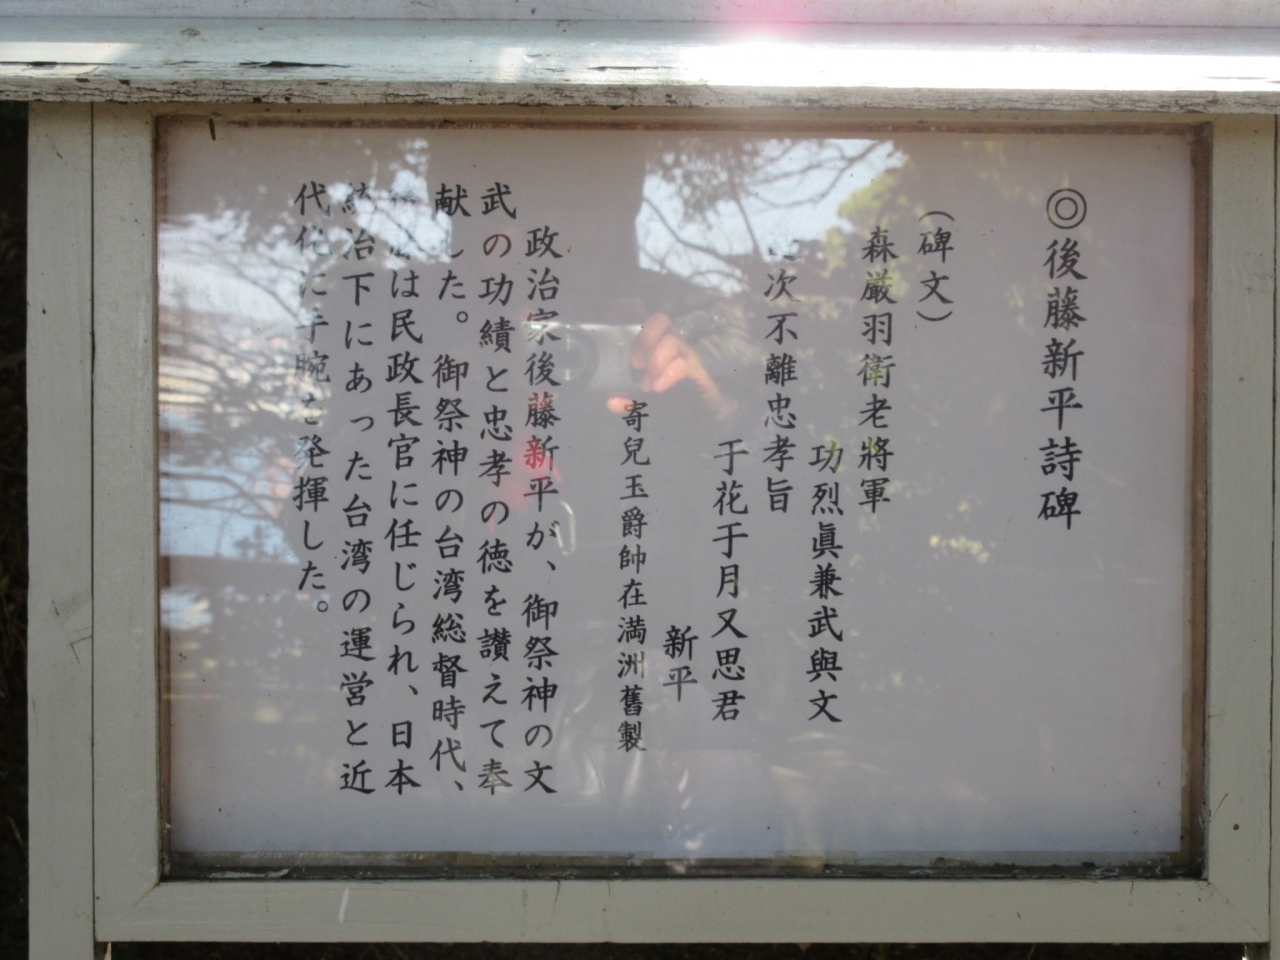 ◎後藤新平詩碑
（碑文）
森厳羽衛老將軍
功烈眞兼武與文
次不離忠孝旨
于花于月又思君
新平
寄兒玉爵帥在満洲舊製
政治家後藤新平が、御祭神の文
武の功績と忠孝の徳を讃えて奉
献した。御祭神の台湾総督時代、
は民政長官に任じられ、日本
統治下にあった台湾の運営と近
代化に手腕を発揮した。